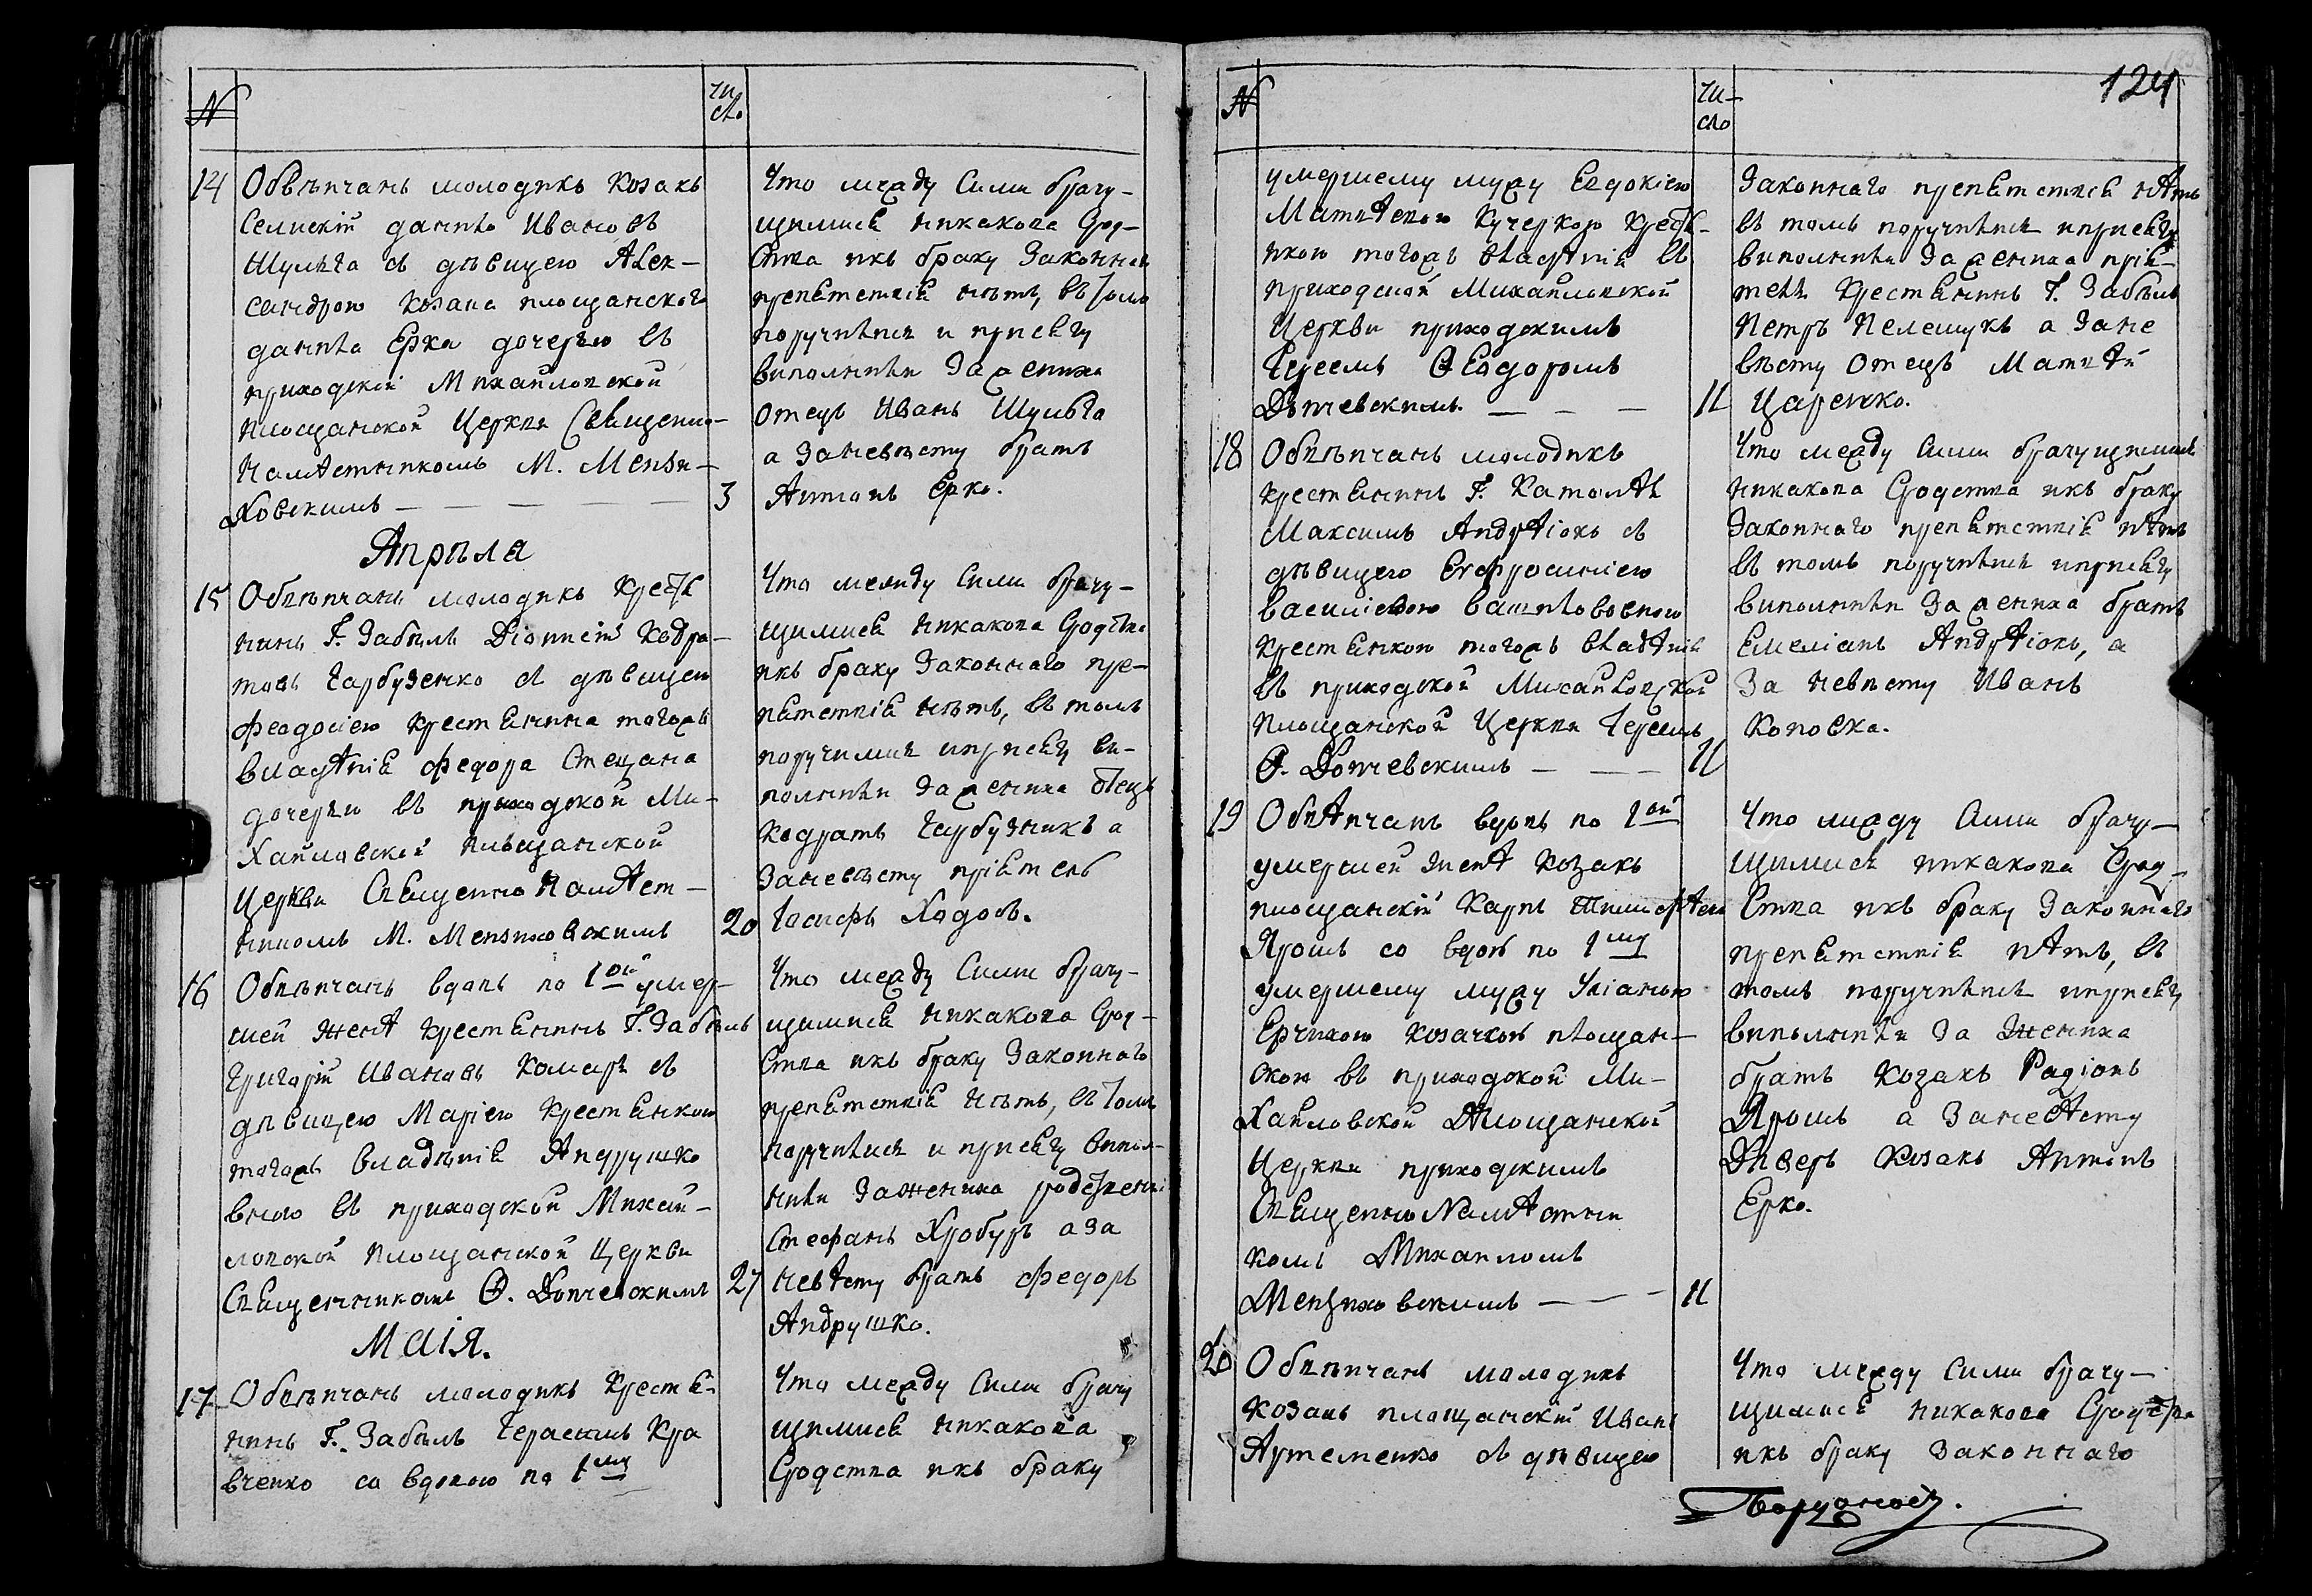 №
чи
сло
14
Обвѣнчанъ молодикъ Козакъ
Селискій данило Ивановъ
Шулга съ дѣвицею Алек-
сандрою Козака площанского
данила Ерка дочерью въ
приходской Михайловской
площанской Церкви Священно-
намѣстникомъ М. Менжи-
ховскимъ — — — — —
3
Что между сими брачу-
щимися никакова Срод-
ства икъ браку Законнаго
препятствія нѣтъ, въ томъ
поручились и присягу
виполнили Зажениха
отецъ Иванъ Шульга
а Заневѣсту братъ
Антонъ Ерко.
Апрѣля
15
Обвѣнчанъ молодикъ Крестья
нинъ Г. Забѣлъ Діонисій Кодра-
товъ Гарбузенко съ дѣвицею
феодосіею крестьянина тогожъ
владѣнія федора Стецана
дочерью въ приходской Ми-
хайловской площанской
Церкви Священно намѣст-
никомъ М. Менжиховскимъ
20
Что между сими брачу-
щимися никакова Сродства
икъ браку Законнаго пре-
пятствія нѣтъ, въ томъ
поручились иприсягу ви-
полнили Зажениха отецъ
Кодратъ Гарбузникъ а
Заневѣсту пріятель
Іосифъ Ходос.
16
Обвѣнчанъ вдовъ по 1ой умер-
шей женѣ Крестьянинъ Г. Забѣлъ
Григорій Ивановъ Комаръ съ
дѣвицею Маріею Крестьянкою
тогожъ владѣнія Андрушко
вною въ приходской Михай-
ловской площанской Церкви
Священникомъ Ѳ. Домчевскимъ
27
Что между сими брачу-
щимися никакова Срод-
ства икъ браку Законнаго
препятствія нѣтъ, въ томъ
поручились и присягу випол-
нили Заженика родственникъ
Стефанъ Хробуръ аЗа
невѣсту братъ федоръ
Андрушко.
Маія.
17
Обвѣнчанъ молодикъ Крестья-
нинъ Г. Забѣлъ Герасимъ Кра
вченко со вдовою по 1му
Что между сими брачу
щимися никакова
Сродства икъ браку
124
№
чи-
сло
умершему мужу Евдокіею
Матвѣевою Кучеркою Крестья-
нкою тогожъ владѣнія въ
приходской Михайловской
Церкви приходскимъ
Іереемъ Ѳеодоромъ
Домчевскимъ. — — —
11
Законнаго препятствія нѣтъ
въ томъ поручились иприсягу
виполнили Зажениха прія-
тель Крестьянинъ Г. Забѣлъ
Петръ Пелешукъ а Зане
вѣсту отецъ Матвѣй
Царенко.
18
Обвѣнчанъ молодикъ
крестьянинъ Г. Католѣ
Максимъ Андрѣіовъ съ
дѣвицею Евфросиніею
Василіевою Вашиловскою
Крестьянкою тогожъ владѣнія
въ приходской Михайловской
площанской Церкви Іереемъ
Ѳ. Домчевскимъ — — —
11
Что между сими брачущимися
никакова Сродства икъ браку
Законнаго препятствія нѣтъ
въ томъ поручились иприсягу
виполнили Зажениха братъ
Емеліанъ Андрѣіовъ, а
За невѣсту Иванъ
Коповка.
19
Обвѣнчанъ вдовъ по 1ой
умершей женѣ Козакъ
площанскій Карпъ Тимофѣевъ
Ярошъ со вдов по 1му
умершему мужу Уліаною
Ерчихою козачкою площан-
скою въ приходской Ми-
хайловской Площанской
Церкви приходскимъ
Священно Намѣстни
комъ Михаиломъ
Менжиховскимъ — — —
11
Что между сими брачу-
щимися никакова Срод-
ства икъ браку Законнаго
препятствія нѣтъ, въ
томъ поручились иприсягу
виполнили За Женика
братъ козакъ Радіонъ
Ярошъ а Заневѣсту
Диверъ Козакъ Антонъ
Ерко.
20
Обвѣнчанъ молодикъ
козакъ площанскій Иванъ
Артеменко съ дѣвицею
Что между сими брачу-
щимися никакова Сродства
икъ браку Законнаго